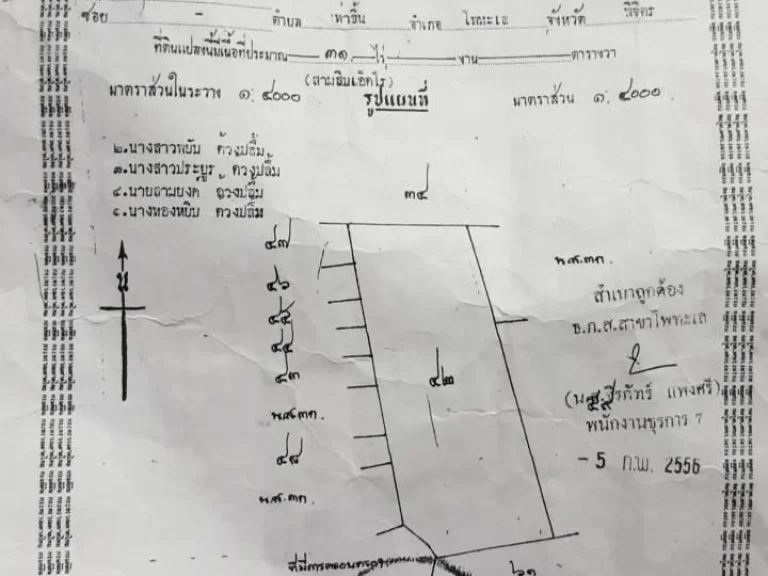 ซอย - ตำบล ท่าขึ้น อำเภอ โพทะเล จังหวัด พิจิตร
ที่ดินแปลงนี้มีเนื้อที่ประมาณ ๓๑ ไร่ งาน ตารางวา
(สามสิบเอ็ดไร่)
มาตราส่วนในระวาง ๑: ๔๐๐๐ รูปแผนที่ มาตราส่วน ๑: ๔๐๐๐
๒.นางสาวพยับ ด้วงปลื้ม
๓.นางสาวประยูร ด้วงปลื้ม
๔.นายลำยงค์ ด้วงปลื้ม
๕.นางทองหยิบ ด้วงปลื้ม
๓๔
๔๗
น
๔๖
๔๕
๔๔
๔๓
๔๒
น.ส.๓ก.
น.ส.๓ก.
๔๘
น.ส.๓ก.
สำเนาถูกต้อง
ธ.ก.ส.สาขาโพทะเล
แพงศรี)
พนักงานธุรการ 7
- 5 ก.พ. 2556
๖๑